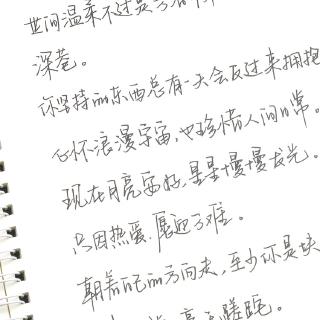 世间温柔不过是
深巷。
你坚持的东西总有一天会反过来拥抱
心怀浪漫宇宙,也珍惜人间日常。
现在月亮要好,星星慢慢发光。
只因热爱,愿迎万难。
朝着自己的方向走,至少你是快
蹉跎。